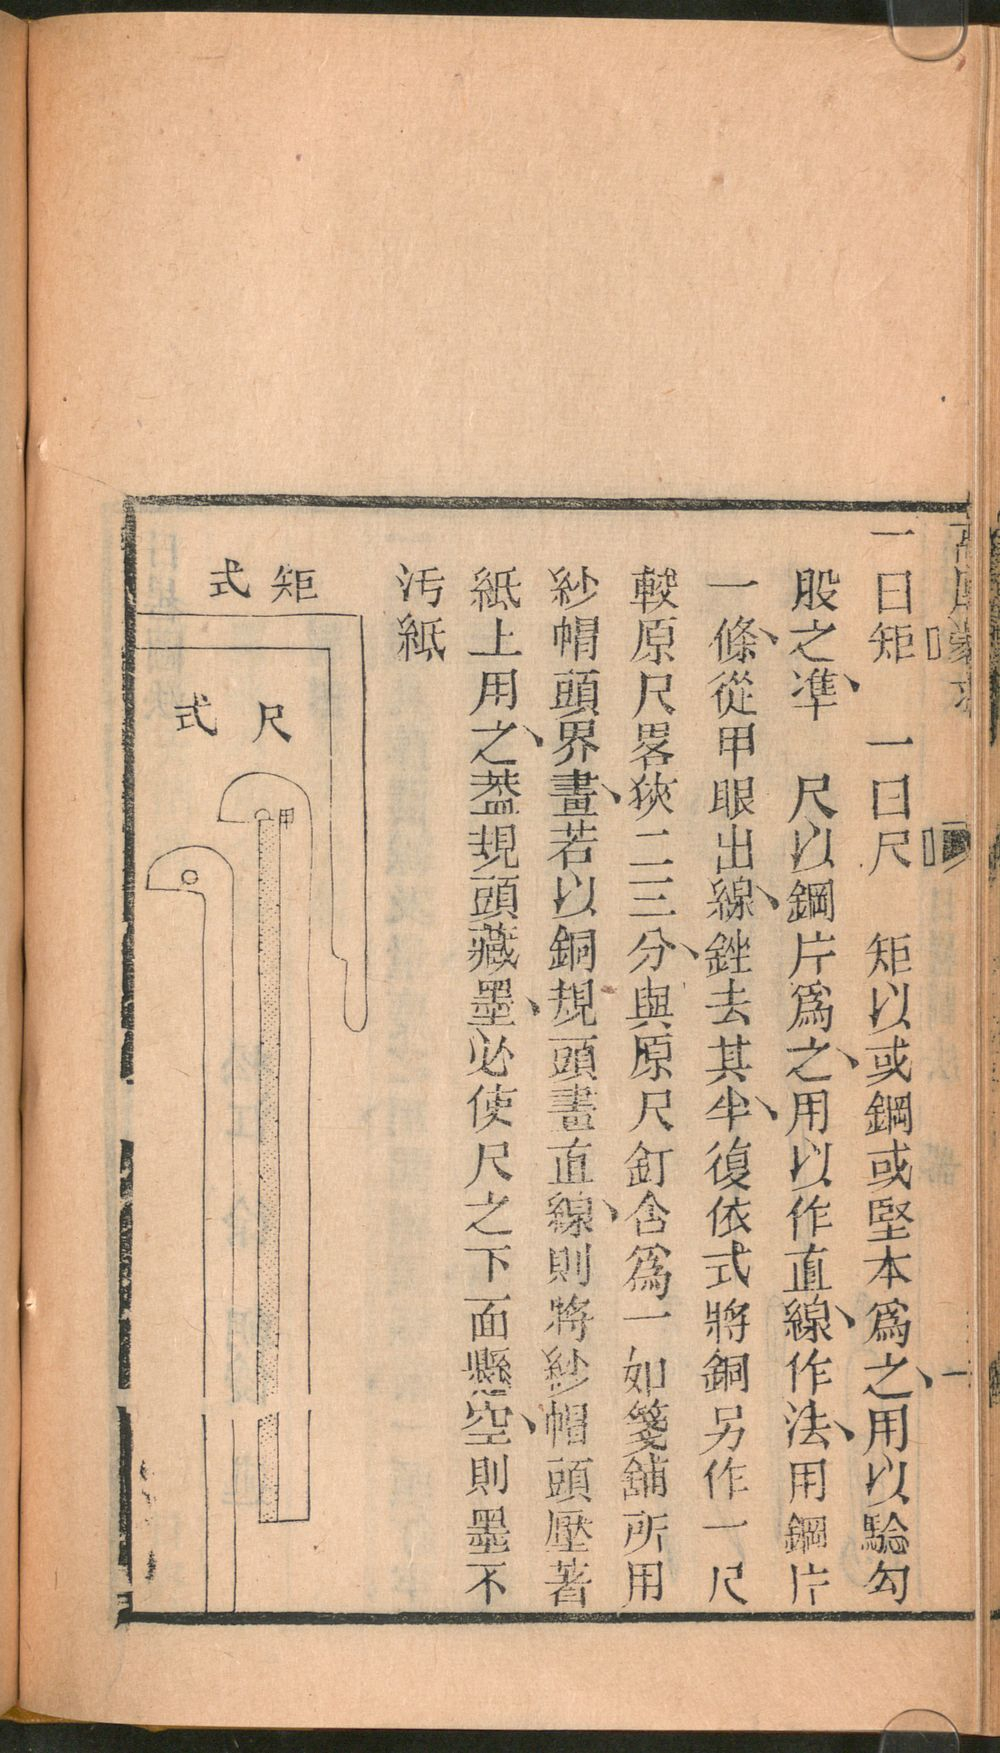 一曰矩　一曰尺　矩以或鋼或堅本爲之、用以驗勾
股之準、　尺以鋼片爲之、用以作直線、作法、用鋼片
一條、從甲眼出線、銼去其半、復依式將銅另作一尺
較原尺畧狹二三分、與原尺釘含爲一如箋舖所用
紗帽頭界畫、若以銅規頭畫直線、則將紗帽頭壓著
紙上用之、葢規頭藏墨、必使尺之下面懸空、則墨不
汚紙
矩式
尺式
甲